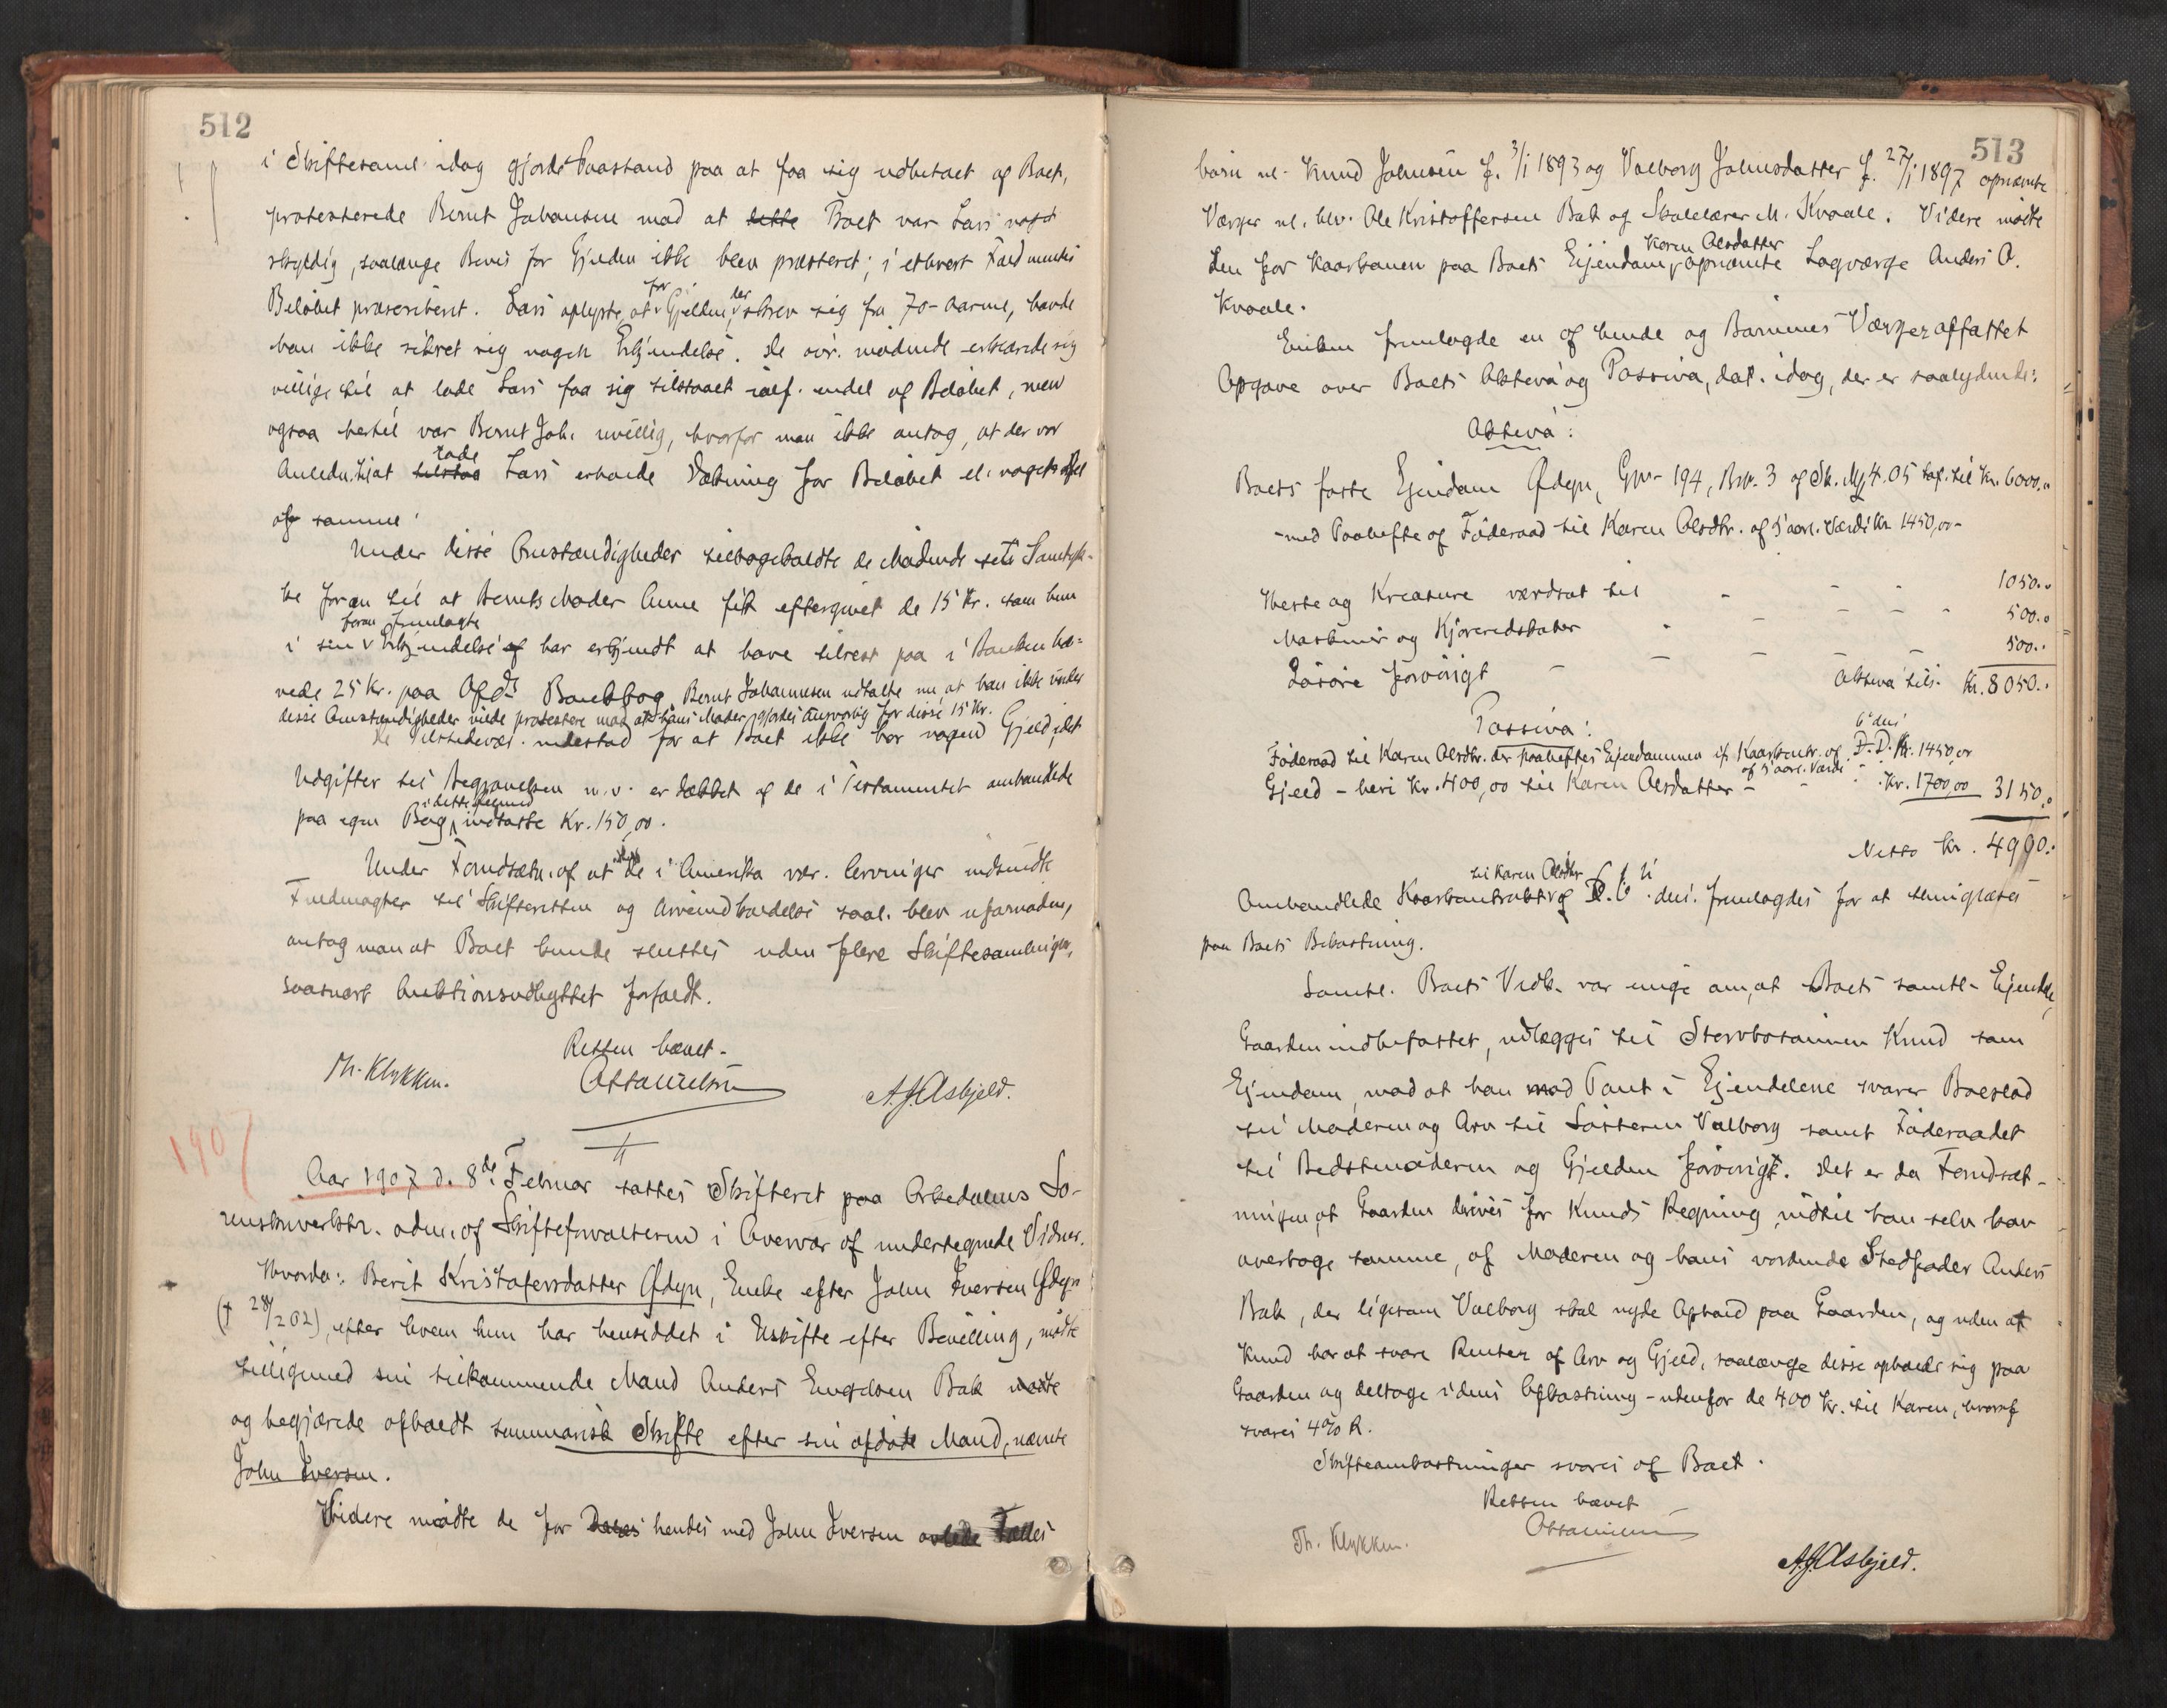 512
i Skiftesaml. idag gjorde Paastand paa at faa sig udbetalt af Boet,
protesterede Bernt Johansen mod at dette Boet var Lars noget
skyldig, saalænge Bevis for Gjælden ikke blev præsteret; i ethvert Fald mentes
Beløbet præscriberet. Lars oplyste, at for Gjælden, der skrev sig fra 70-Aarene, havde
han ikke sikret sig nogen Erkjendelse. De øvr. mødende erklærede sig
villige til at lade Lars faa sig tilstaaet ialf. endel af Beløbet, men
ogsaa hertil var Bernt Joh. uvillig, hvorfor man ikke antog, at der var
Anledn. til at tilstaa lade Lars erholde Dækning for Beløbet el. noget
af samme.
Under disse Omstændigheder tilbageholdte de Mødende sit Samtyk-
ke foran til at Bernts Moder Anne fik eftergivet de 15 Kr. som hun
i sin foran fremlagte Erkjendelse har erkjendt at have tilrest paa i Banken hæ-
vede 25 Kr. paa Afd.s Bankbog. Bernt Johannesen udtalte nu, at han ikke under
disse Omstændigheder vilde protestere mod at hans Moder gjordes ansvarlig for disse 15 Kr.
De Tilstedevær. indestod for at Boet ikke har nogen Gjæld, idet
Udgifter til Begravelsen m.v. er dækket af de i Testamentet omhandlede
paa egen Bog i dette Øiemed indsatte Kr. 150,00.
Under Forudsætn. af at de i Amerika vær. Arvinger indsendte
Fuldmagter til Skifteretten og Arveindkaldelse saal. blev ufornøden,
antog man at Boet kunde sluttes uden flere Skiftesamlinger,
saasnart Auktionsudbyttet forfaldt.
Retten hævet.
Th. Klykken.
A. J. Asbjeld.
1907
Aar 1907 d. 8de Februar sattes Skifteret paa Orkedalens Lo-
renskriverktr. adm. af Skifteforvalteren i Overvær af undertegnede Vidner.
Hvorda: Berit Kristofersdatter Ødeyn, Enke efter John Iversen Ødeyn
(† 28/2 02), efter hvem hun har hensiddet i Uskifte efter Bevilling, mødte
tilligemed sin tilkommende Mand Anders Engelsen Bak mødte
og begjærede afholdt summarisk Skifte efter sin afdøde Mand, nævnte
John Iversen.
Videre mødte de for hendes med John Iversen avlede Fælles
513
børn nl. Knud Johnsen f. 3/1 1893 og Valborg Johnsdatter f. 27/1 1897 opnævnte
Værger nl. hlv. Ole Kristoffersen Bak og Skolelærer M. Kvaale. Videre mødte
den for Kaarkonen paa Boets Eiendom, Karen Olsdatter opnævnte Lagværge Anders O.
Kvaale.
Enken fremlagde en af hende og Børnenes Værger affattet
Opgave over Boets Aktiva og Passiva, dat. idag, der er saalydende:
Aktiva:
Boets faste Ejendom Ødeyn, Gno. 194, Bno. 3 af Sk. M. 4.05 tax. til Kr. 6000.„
- med Paahefte af Føderaad til Karen Olsdtr. af 5 aarl. Værdi Kr 1450,oo -
Heste og Kreature værdsat til - - - 1050.„
Maskiner og Kjøreredskaber - - - 500.„
Løsøre forøvrigt - - - 500.„
Aktiva tils. Kr. 8050.„
Passiva:
Føderaad til Karen Olsdtr. der paaheftes Ejendommen if. Kaarkontr. af D. D. Kr. 1450,oo
af 5 aarl. Værdi
Gjeld - heri Kr. 400,00 til Karen Olsdatter - - Kr. 1700,00 3150.„
Netto Kr. 4900.„
Omhandlede Kaarkontrakt til Karen Olsdtr fremlagdes for at thinglæses
paa Boets Bekostning.
Samtl. Boets Vedk. var enige om, at Boets samtl. Ejendele,
Gaarden indbefattet, udlægges til Stervbosønnen Knud som
Ejendom, mod at han mod Pant i Ejendelene svarer Boeslod
til Moderen og Arv til Søsteren Valborg samt Føderaadet
til Bedstemoderen og Gjælden forøvrigt. Det er da Forudsæt-
ningen, at Gaarden drives for Knuds Regning, indtil han selv kan
overtage samme, af Moderen og hans vordende Stedfader Anders
Bak, der ligesom Valborg skal nyde Ophold paa Gaarden, og uden at
Knud har at svare Renter af Arv og Gjeld, saalænge disse opholde sig paa
Gaarden og deltage i dens Opbastning - udenfor de 400 Kr. til Karen, hvoraf
svares 4% R.
Skifteomkostninger svares af Boet.
Retten hævet
Th. Klykken.
A. J. Asbjeld.